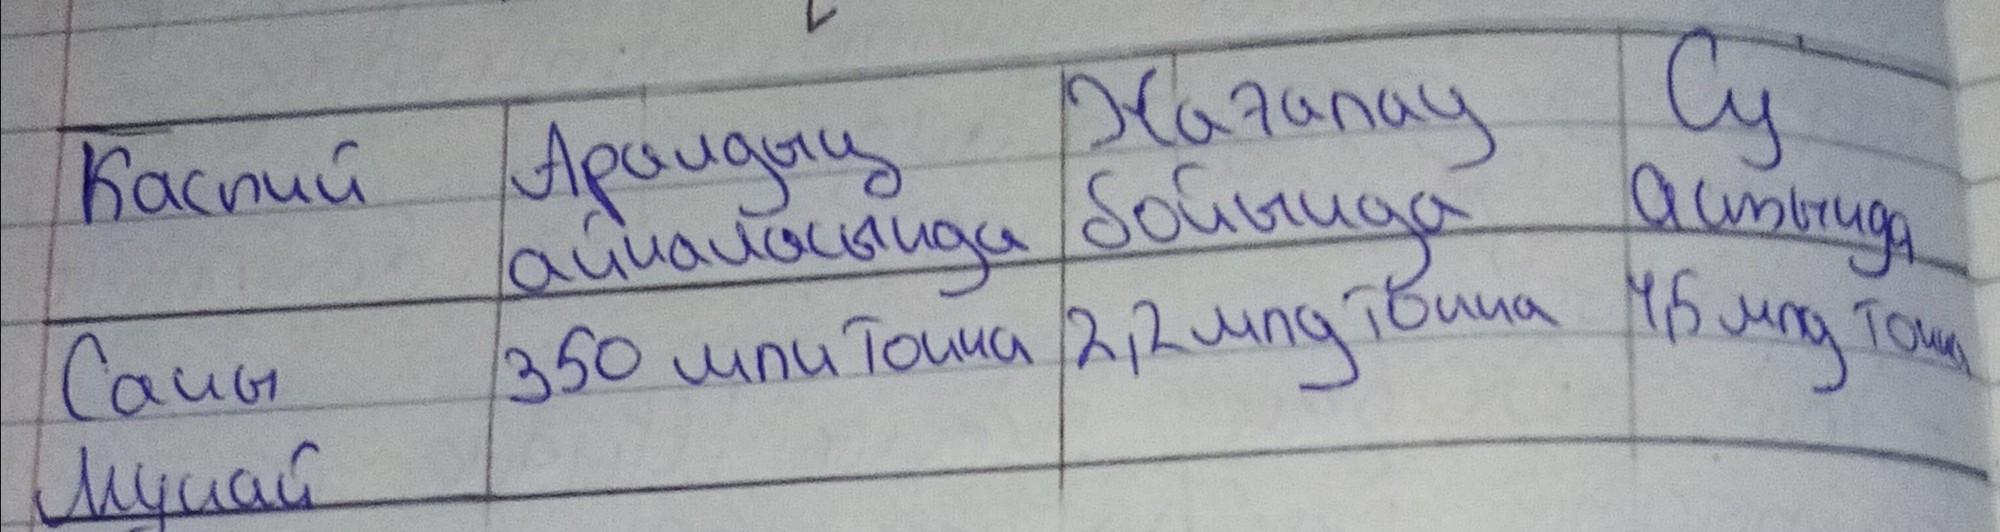 Каспий Аралдың айналасында Жағалау бойында Су астында
Саны Мұнай 350 млн тонна 2,2 млд тонна 4,5 млд тонна